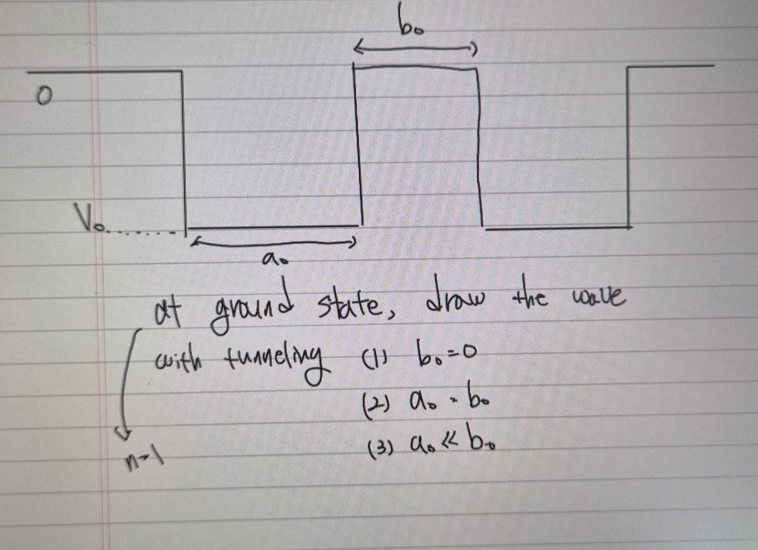 b₀
0
V₀
a₀
at ground state, draw the wave
with tunneling (1) b₀=0
(2) a₀ = b₀
(3) a₀ << b₀
n=1